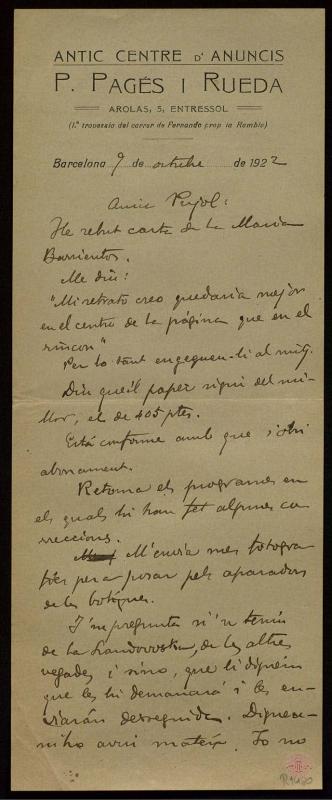 ANTIC CENTRE D'ANUNCIS
P. PAGÉS I RUEDA
AROLAS, 5, ENTRESSOL
(1.ª travessia del carrer de Fernando prop la Rambla)
Barcelona 9 de octubre de 1922
Amic Pujol:
He rebut carta de la Maria
Barrientos.
Me diu:
"Mi retrato creo quedaria mejor
en el centro de la página que en el
rincon"
Per lo tant engeguen-li al mitg.
Diu que'l paper sigui del mi-
llor, el de 405 ptes.
Está conforme amb que s'obri
abonament.
Retorna els programes en
els quals hi han fet algunes co
rreccions.
M'envia mes fotogra
fies per a posar pels aparadors
de les botigues.
I'm pregunta si'n tenim
de la Landowska, de les altres
vegades i sino, que li diguem
que les hi demanará i les en-
viarán desseguida. Digues-
m'ho avui mateix. Jo no
R.1420